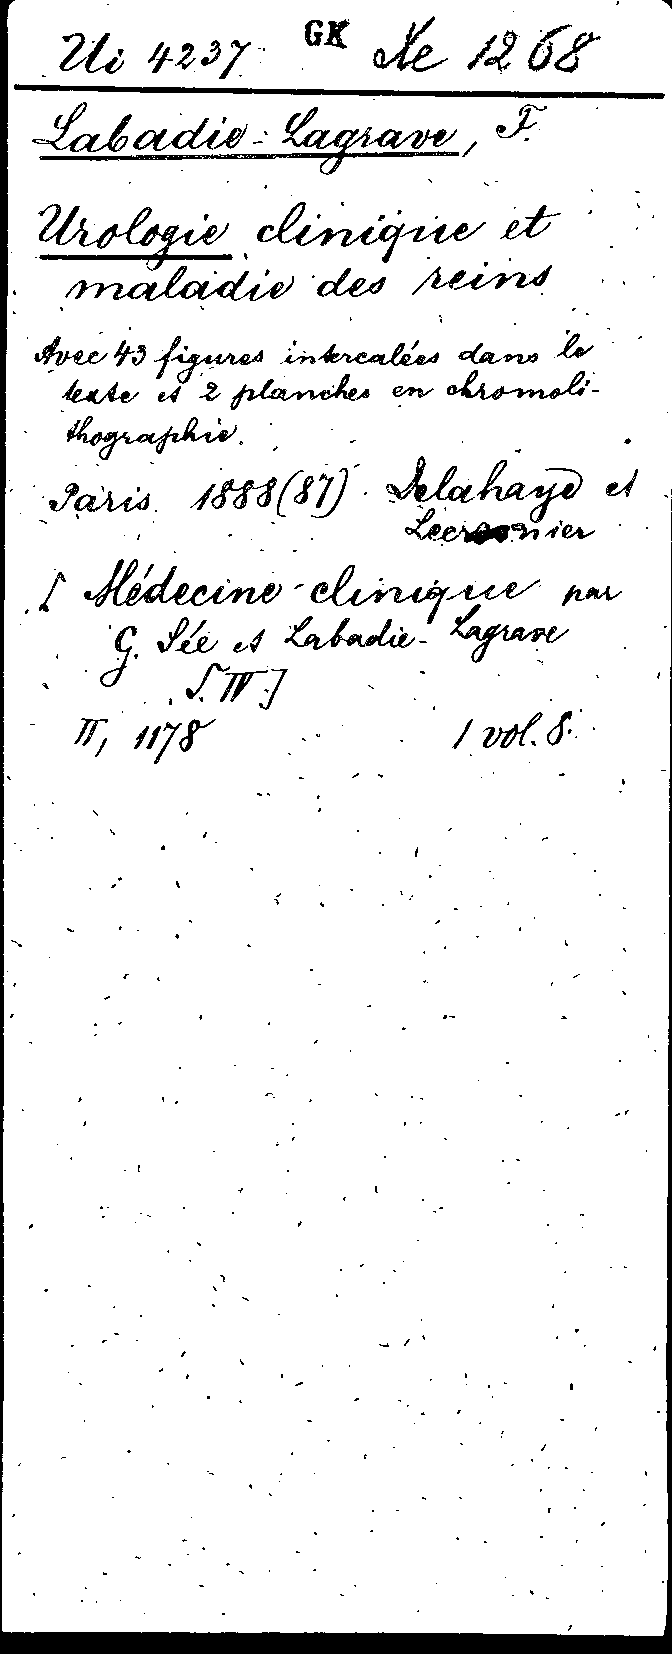 Ui 4237 GK Xe 1268
Labadie-Lagrave, F.
Urologie clinique et
maladie des reins
Avec 43 figures intercalées dans le
texte et 2 planches en chromoli-
thographie.
Paris 1888(87) Delahaye et
Lecrosnier
[ Médecine clinique par
G. Sée et Labadie-Lagrave
[IV.]
II, 1178 1 vol. 8.